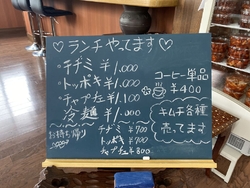 ♡ランチやってます♡
チヂミ ¥1,000
トッポキ ¥1,000
チャプチェ ¥1,100
冷麺 ¥1,000
コーヒー単品
¥400
キムチ各種
売ってます
お持ち帰り
チヂミ ¥700
トッポキ ¥700
チャプチェ ¥800